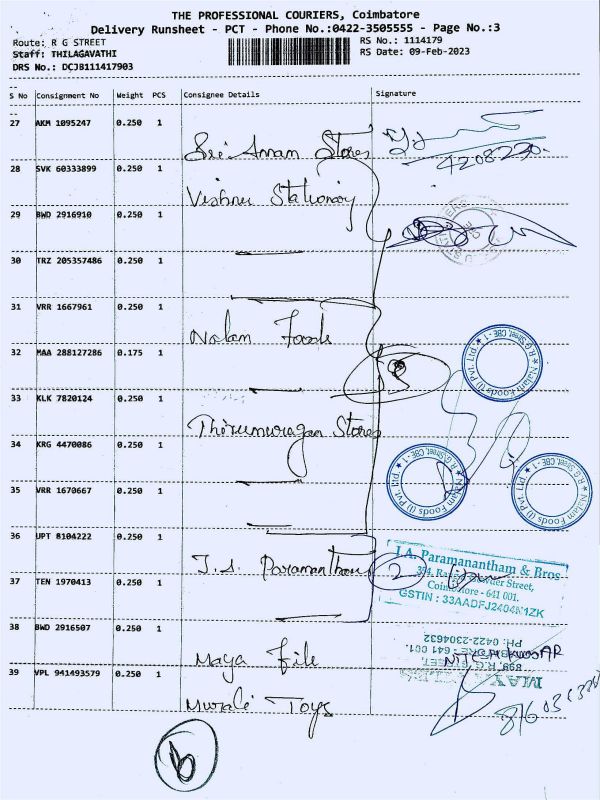 THE PROFESSIONAL COURIERS, Coimbatore
Delivery Runsheet - PCT - Phone No.:0422-3505555 - Page No.:3
Route: R G STREET
Staff: THILAGAVATHI
DRS No.: DCJB111417903
RS No.: 1114179
RS Date: 09-Feb-2023
S No Consignment No Weight PCS Consignee Details Signature
27 AKM 1095247 0.250 1 Sri Annan Stores
28 SVK 60333899 0.250 1 Vishnu Stationary
29 BWD 2916910 0.250 1
30 TRZ 205357486 0.250 1
31 VRR 1667961 0.250 1 Nalam Foods
32 MAA 288127286 0.175 1
33 KLK 7820124 0.250 1 Thirumuragan Stores
34 KRG 4470086 0.250 1
35 VRR 1670667 0.250 1
36 UPT 8104222 0.250 1 J.A. Paramanthan
37 TEN 1970413 0.250 1
38 BWD 2916507 0.250 1 Maya File
39 VPL 941493579 0.250 1 Murali Toys
Nalam Foods (I) Pvt. Ltd. ★ R.G Street, CBE - 1 ★
Nalam Foods (I) Pvt. Ltd. ★ R.G Street, CBE - 1 ★
Nalam Foods (I) Pvt. Ltd. ★ R.G Street, CBE - 1 ★
J.A. Paramanantham & Bros
Street,
Coimbatore - 641 001.
GSTIN : 33AADFJ2404M1ZK
2
MAYA FILES
899, R.G. STREET,
COIMBATORE - 641 001.
PH: 0422-2304632